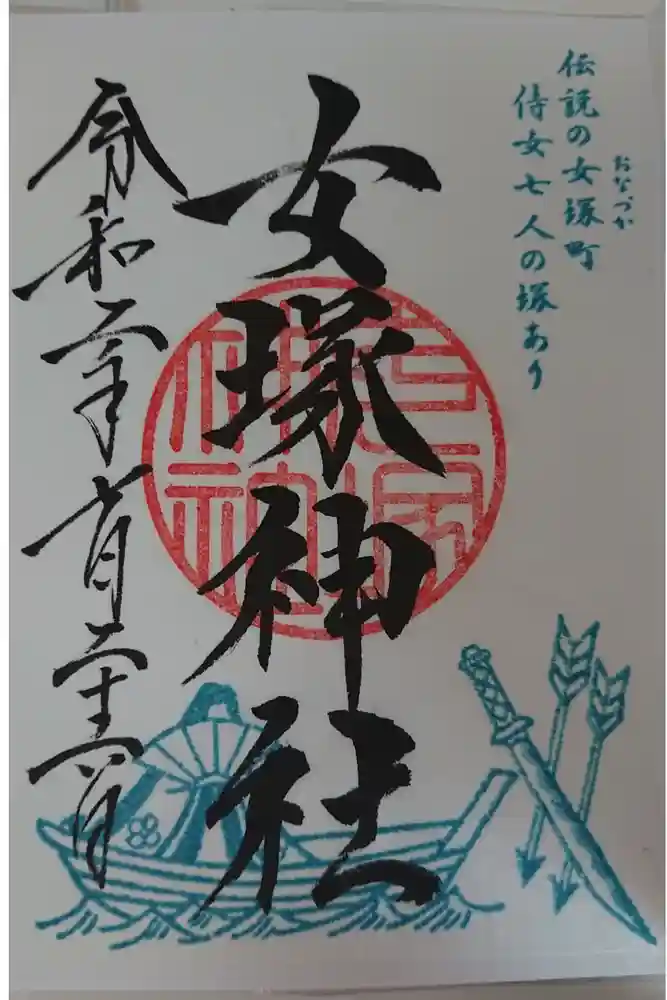 おなづか
伝説の女塚町
侍女七人の塚あり
女塚神社
令和二年月二十六日